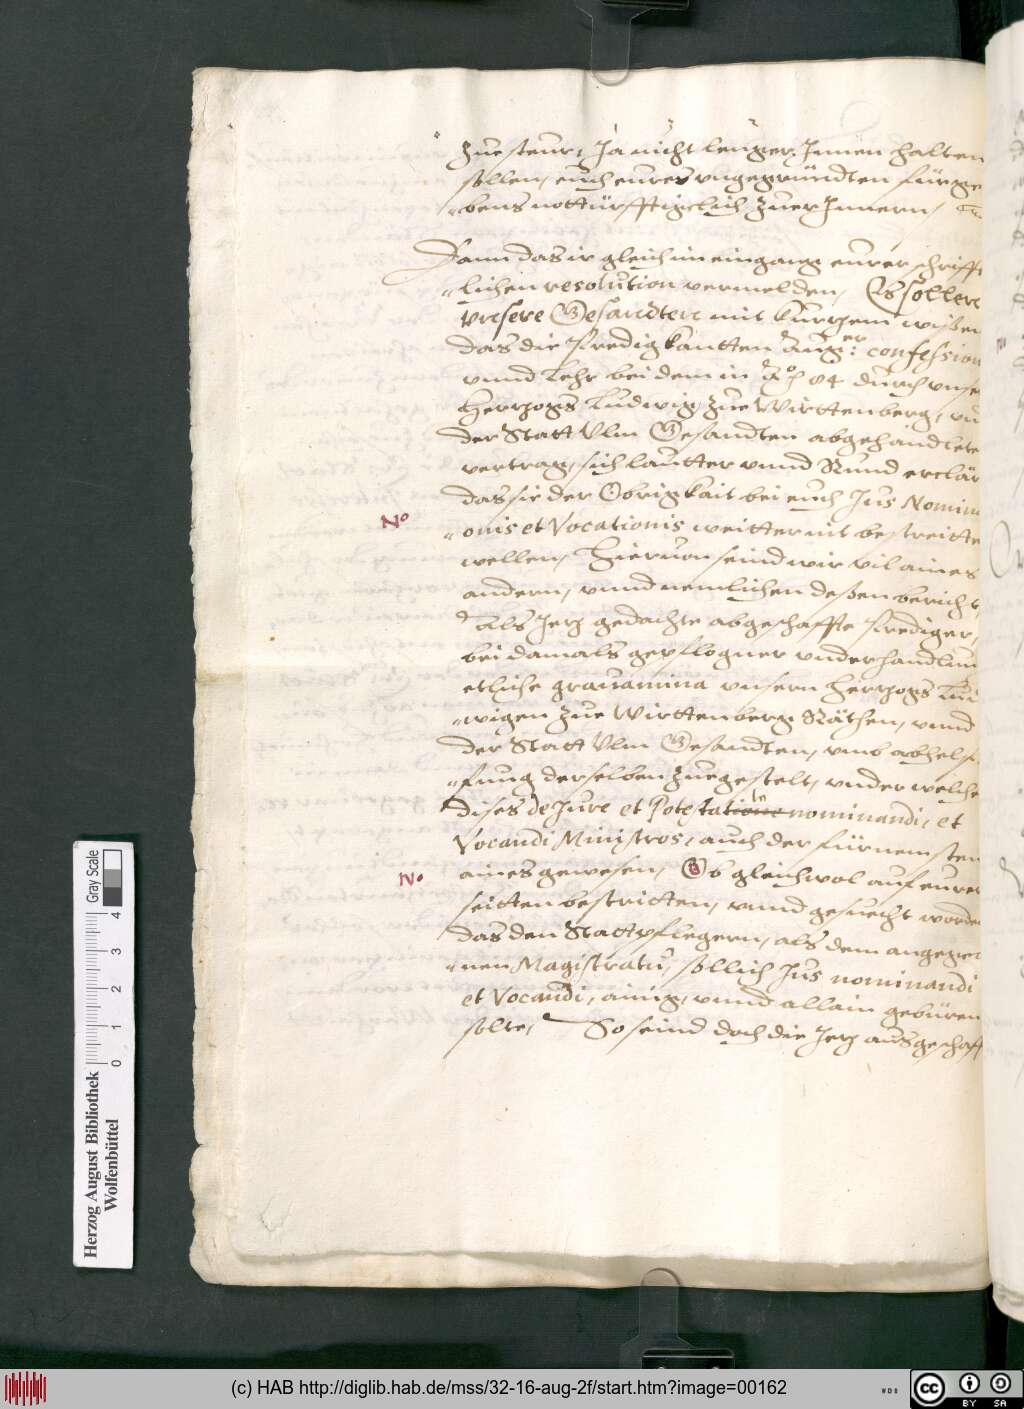 zue steur, Ja nicht lenger Innen halten
sollen, euch eures vngegründten fürge
bens notturfftigclich zuerJnnern,
Dann das ir gleich im eingang eurer schrifft
lichen resolution vermelden, Es sollen
vnsere Gesandten mit kurzem wißen
das die Predigkantten Aug:er confession
vnnd Lehr bei dem in Aº 84 durch vnse
Herzogs Ludwig zue Wirttenberg, vn
der Statt Vlm Gesandten abgehandlete
vertrag, sich lautter vnnd Rund erclär
das sie der Obrigkait bei euch Jus Nomin
onis et Vocationis weitter nit bestreitte
No
wellen, Hieruon seind wir vil aines
andern, vnnd nemlichen deßen bericht,
Als Jezgedachte abgeschaffte Prediger,
bei damals gepflogner vnderhandlun
etliche grauamina vnsern Herzogs Lud
wigen zue Wirttenberg Räthen, vnnd
der Statt Vlm Gesandten, vmb abhelf
fung derselben zuegestelt, vnder welche
dises de Jure et Potestate nominandi, et
Vocandi Ministros, auch der fürnemsten
aines gewesen, Ob gleichwol auf eurer
No
seitten bestritten, vnnd gesuecht worde
das den Stattpflegern, als dem angegeb
nen Magistratu, sollich Jus nominandi
et Vocandi, ainig, vnnd allain gebüren
solte, So seind doch die Jezausgeschaff
Herzog August Bibliothek
Wolfenbüttel
0 1 2 3 4
Gray Scale
(c) HAB http://diglib.hab.de/mss/32-16-aug-2f/start.htm?image=00162
WDB
cc BY SA